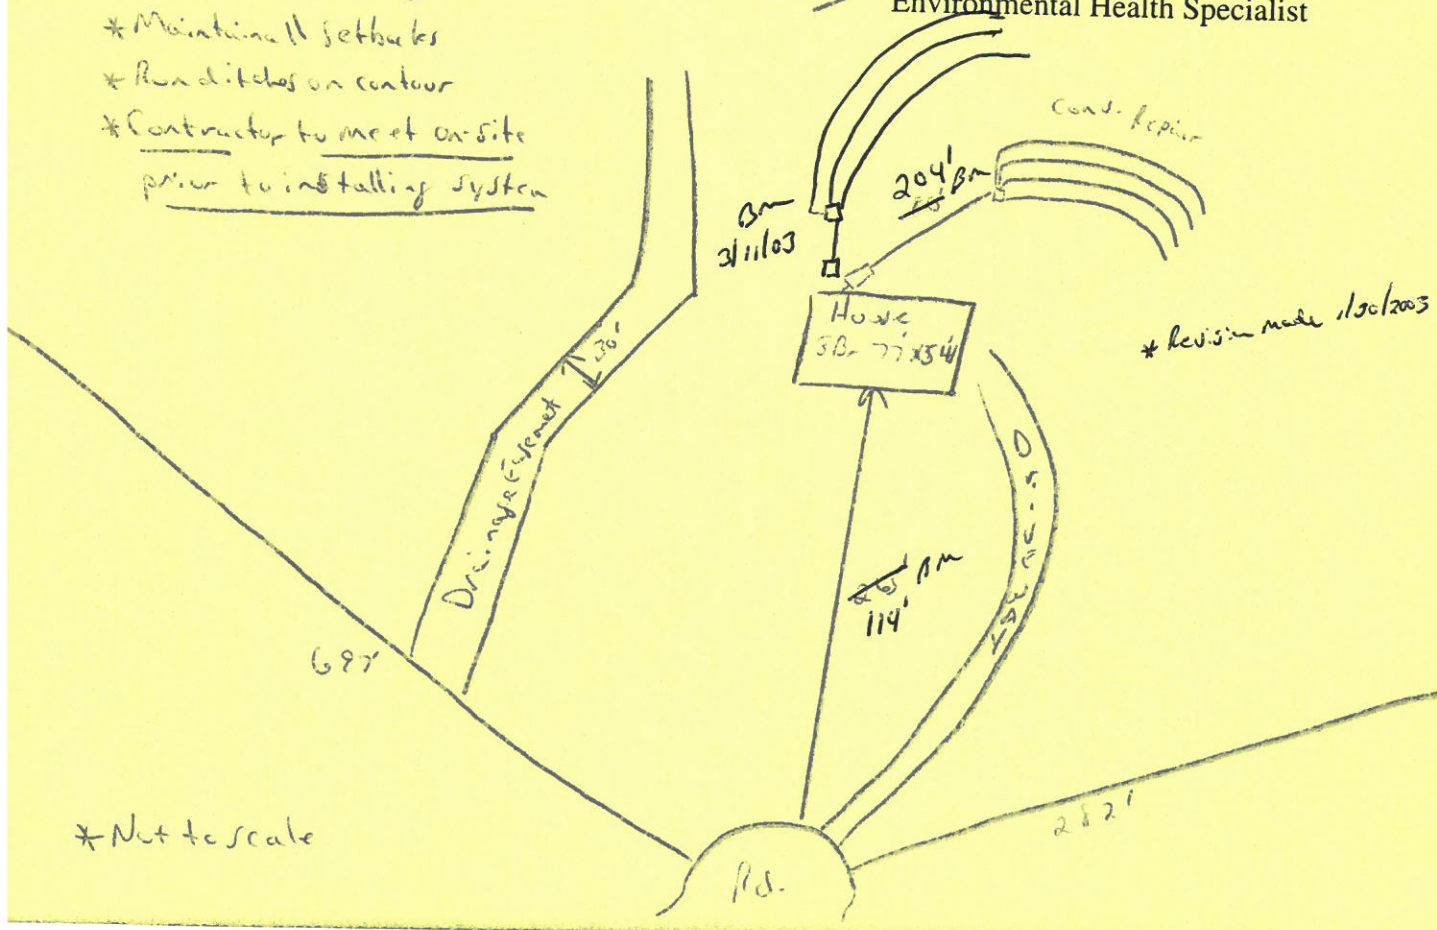 Environmental Health Specialist
* Maintain all setbacks
* Run ditches on contour
* Contractor to meet on-site
prior to installing system
Conv. Repair
204' BM
BM
3/11/03
House
3Br 77'x54'
* Revision made 1/30/2003
30'
Drainage Easement
Driveway
BM
114'
282'
* Not to scale
Rd.